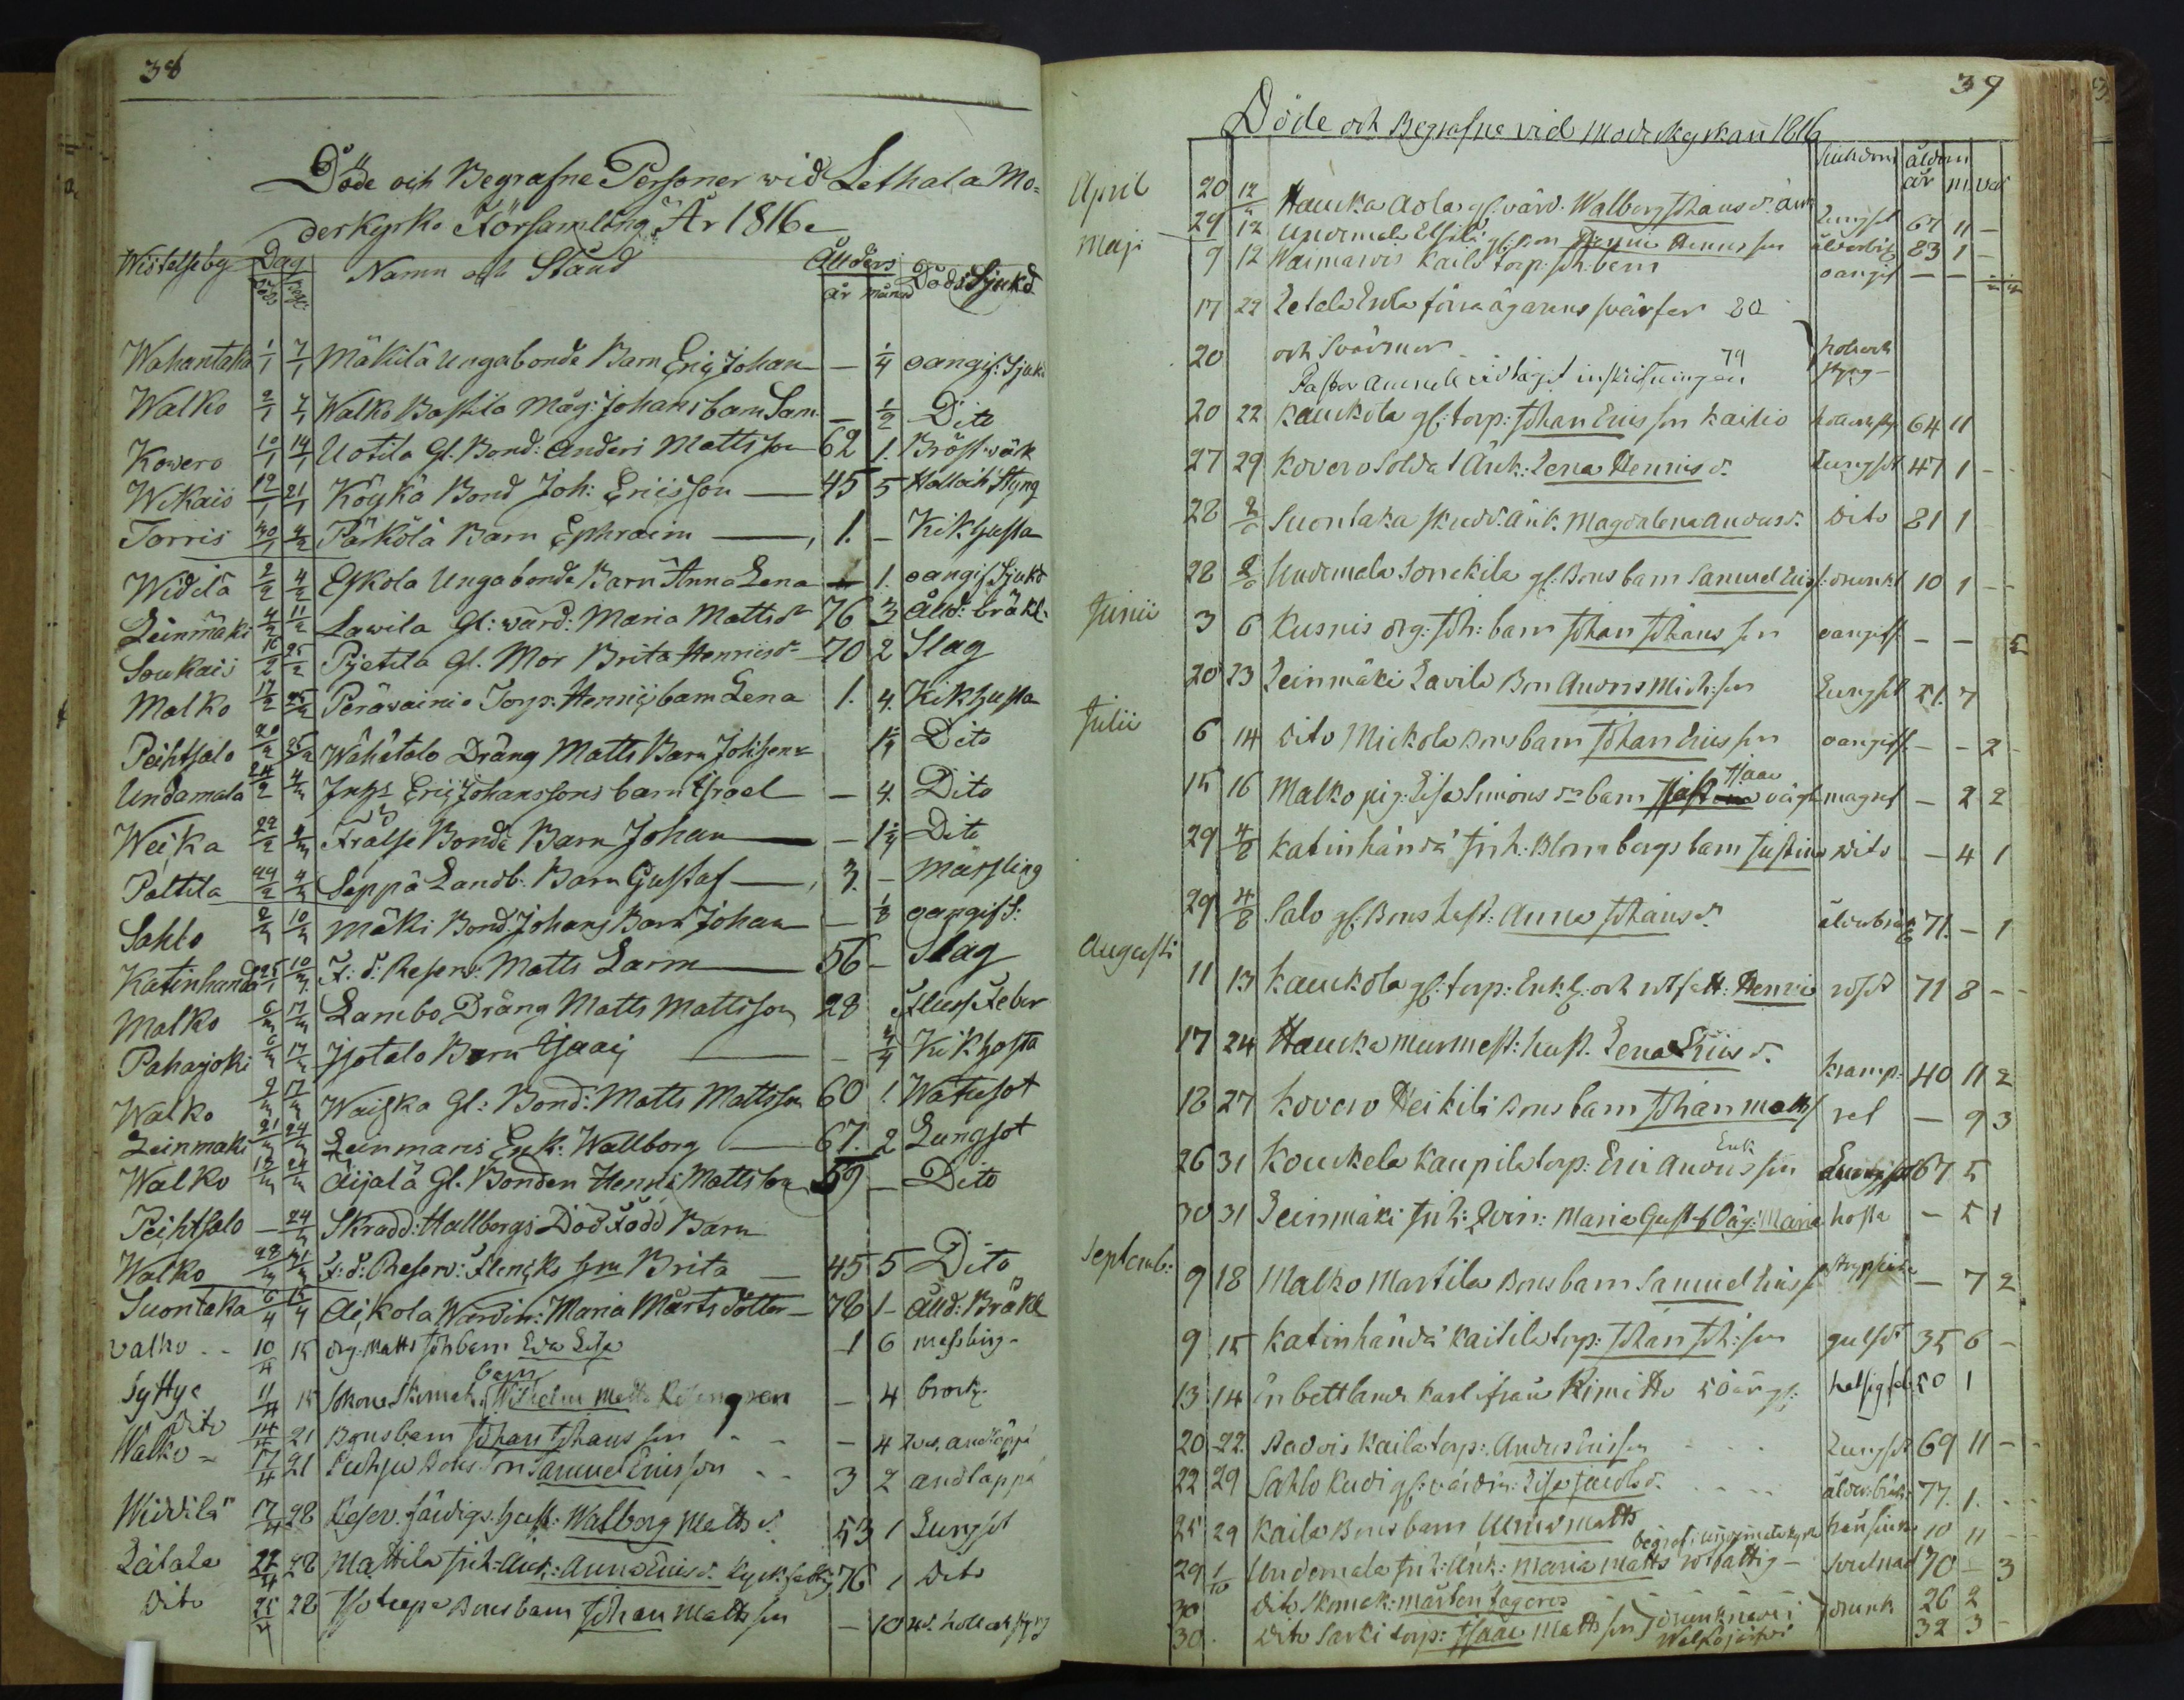 38
Döde och Begrafne Personer wid Lethala Mo-
derkyrko Församling År 1816
Wistelseby Dag Namn och Stånd Ållders Döds Sjukd
död begr. år månad
Wahantaka 1/1 7/1 Mäkilä Ungabonde Barn Eriç Johan — 1/4 oangif: Sjukd
Walko 2/1 7/1 Walko Bastila Måg: Johans barn Sam. — 1/2 Dito
Kowero 10/1 14/1 Uotila Gl. Bond: Anders Matts son 62 1. Bröstwärk
Wikais 12/1 21/1 Köykä Bond Joh: Ericsson — 45 5 Håll och Styng
Torris 30/1 4/2 Pärkölä Barn Ephraim — 1. – Kikhosta
Widilä 2/2 4/2 Eskola Ungabonde Barn Anna Lena 1. oangif Sjukd
Leinmäki 4/2 11/2 Lawila Gl: wärd: Maria Mattsdr 76 3 Ålld: bräkl:
Soukais 16/2 25/2 Pietilä Gl. Mor Brita Henricsdr 70 2 Slag
Malko 17/2 25/2 Peräwainio Torp: Henriç barn Lena 1. 4. Kikhosta
Peihtsalo 20/2 25/2 Wähätalo Dräng Matts Barn 1/4 Dito
Undamala 24/2 4/3 Inhs Eriç Johanssons barn Israel — 4. Dito
Weika 22/2 4/3 Frälse Bonde Barn Johan — 1 1/4 Dito
Poltila 29/2 4/3 Seppä Landb. Barn Gustaf — 3. – Mässling
Sahko 2/3 10/3 Mäki Bond: Johans Barn Johan — 1/8 oangif S:
Katinhända 25/1 10/3 F: d: Reserv: Matts Larm — 56 – Slag
Malko 6/3 17/3 Lambo Dräng Matts Mattsson 28 Fluss Feber
Paharjoki 6/3 17/3 Isotalo Barn Isaaç — 3/4 Kikhosta
Walko 9/3 17/3 Waiska Gl: Bond: Matts Mattsson 60 1. Watusot
Leinmäki 21/3 24/3 Leinmaris Enk: Wallborg — 67. 2 Lungsot
Walko 18/3 24/3 Äijälä Gl. Bonden Henric Mattsson 59 – Dito
Peihtsalo – 24/3 Skradd: Hallbergs Död Född Barn
Walko 28/3 31/3 F: d: Reserv: Flencks Brita — 45 5 Dito
Suontaka 6/4 15/4 Äikola Wärdin: Maria Mårts Dotter — 78 1 – Ålld: Bräkl
valko 10/4 15 drg: Matts Joh barn Eva Lisa – 1 6 messling –
Syttye 11/4 15 Skomak: barn Wilhelm Matts Rosengren — 4 brock
Dito 14/4 21 Bonsbarn Johan Johans son – 4 andtäppa
Walko – 17/4 21 Bons son Samuel Ericsson 3 2 andtäppa
Widilä 17/4 28 Reserv. färdigs hust: Walborg Matts d. 53 1 Lungsot
Lätala 22/4 28 Mattila Inh: Änk: Anna Erics d. 76 1 Dito
Dito 25/4 28 Isotuopa Bonsbarn Johan Mattsson — 10 håll och styng
39
Döde och Begrafne vid Moderkyrkan 1816
Siukdom åldern
år m. vec
April 20 12 Haucka Aola gl: värd. Walborg Johans d. änk Lungsot 67 11 –
29 12 Undemala Elsilä Henric Henrics son ålderbr 83 1 –
Maj 9 12 Warmaris Kails torp: Joh: barn oangif — —
17 22 Letala Enla förra ägarens svärfar 80
20 och Svärmor 79 håll och styng –
Pastor Amnell vidtagit inskrifningen
20 22 Kauckola gl: torp: Johan Ericsson Kailio håll och styng 64 11
27 29 Kovero Soldat Änk: Lena Henrics d. Lungsot 47 1 –
28 2/6 Suontaka änk. Magdalena Anders d. Dito 81 1
28 2/6 Undemala Sonckila gl: Bons barn Samuel Ericss: drunkt 10 1 –
Junii 3 6 Kusnis drg: Joh: barn Johan Johans son oangift – – 5
20 23 Leinmäki Lavila Bon Anders Mich: son Lungsot 51. 7
Julii 6 14 Dito Mickola Bons barn Johan Erics son oangift – – 2
15 16 Malko pig: Lisa Simons dr barn Isaac oägt magref – 2 2
29 4/8 Katinhändä Inh: Blombergs barn Justina Dito – 4 1
29 4/8 Salo gl: Bons hust: Anna Johans d. ålderbräk 71. – 1
Augusti 11 13 Kauckola gl: torp: Enkl: och rotfatt: Henric rosot 71 8 –
17 24 Haucka murmest: hust. Lena Erics d. kramp. 40 11 2
18 27 Kovero Heikilä Bons barn Johan Matts rel – 9 3
26 31 Kouckela Kaupila torp: Eric Anders son Enk Lungsot 67 5
30 31 Leinmäki Inh: Qvin: Maria Gustaf Däg: Maria hosta – 5 1
Septemb: 9 18 Malko Martila Bons barn Samuel Ericss strypsiuk – 7 2
9 15 Katinhändä Kaitila torp: Johan Joh: son gulsot 35 6 –
13 14 En bettlande Karl ifrån Kimitto 50 år gl: hetsig feb 50 1
20 22 Radois Kaila torp: Anders Ericsson Lungsot 69 11 –
22 29 Sahlo Kudi gl: värdin: Lisa Jacobs d. ålder: bräk: 77. 1.
25 29 Kaila Bons barn Ulrica Matts 10 11
29 1/10 Undemala Inh: Änk: Maria Matts rotfattig – begraf: Undemala kyrk svulnad 70 – 3
30 Dito Skomak: Mårten Fageros drunk 26 2
30. Dito Sarki torp: Isaac Matts son drunknade i Walkojärfvi 32 3 –